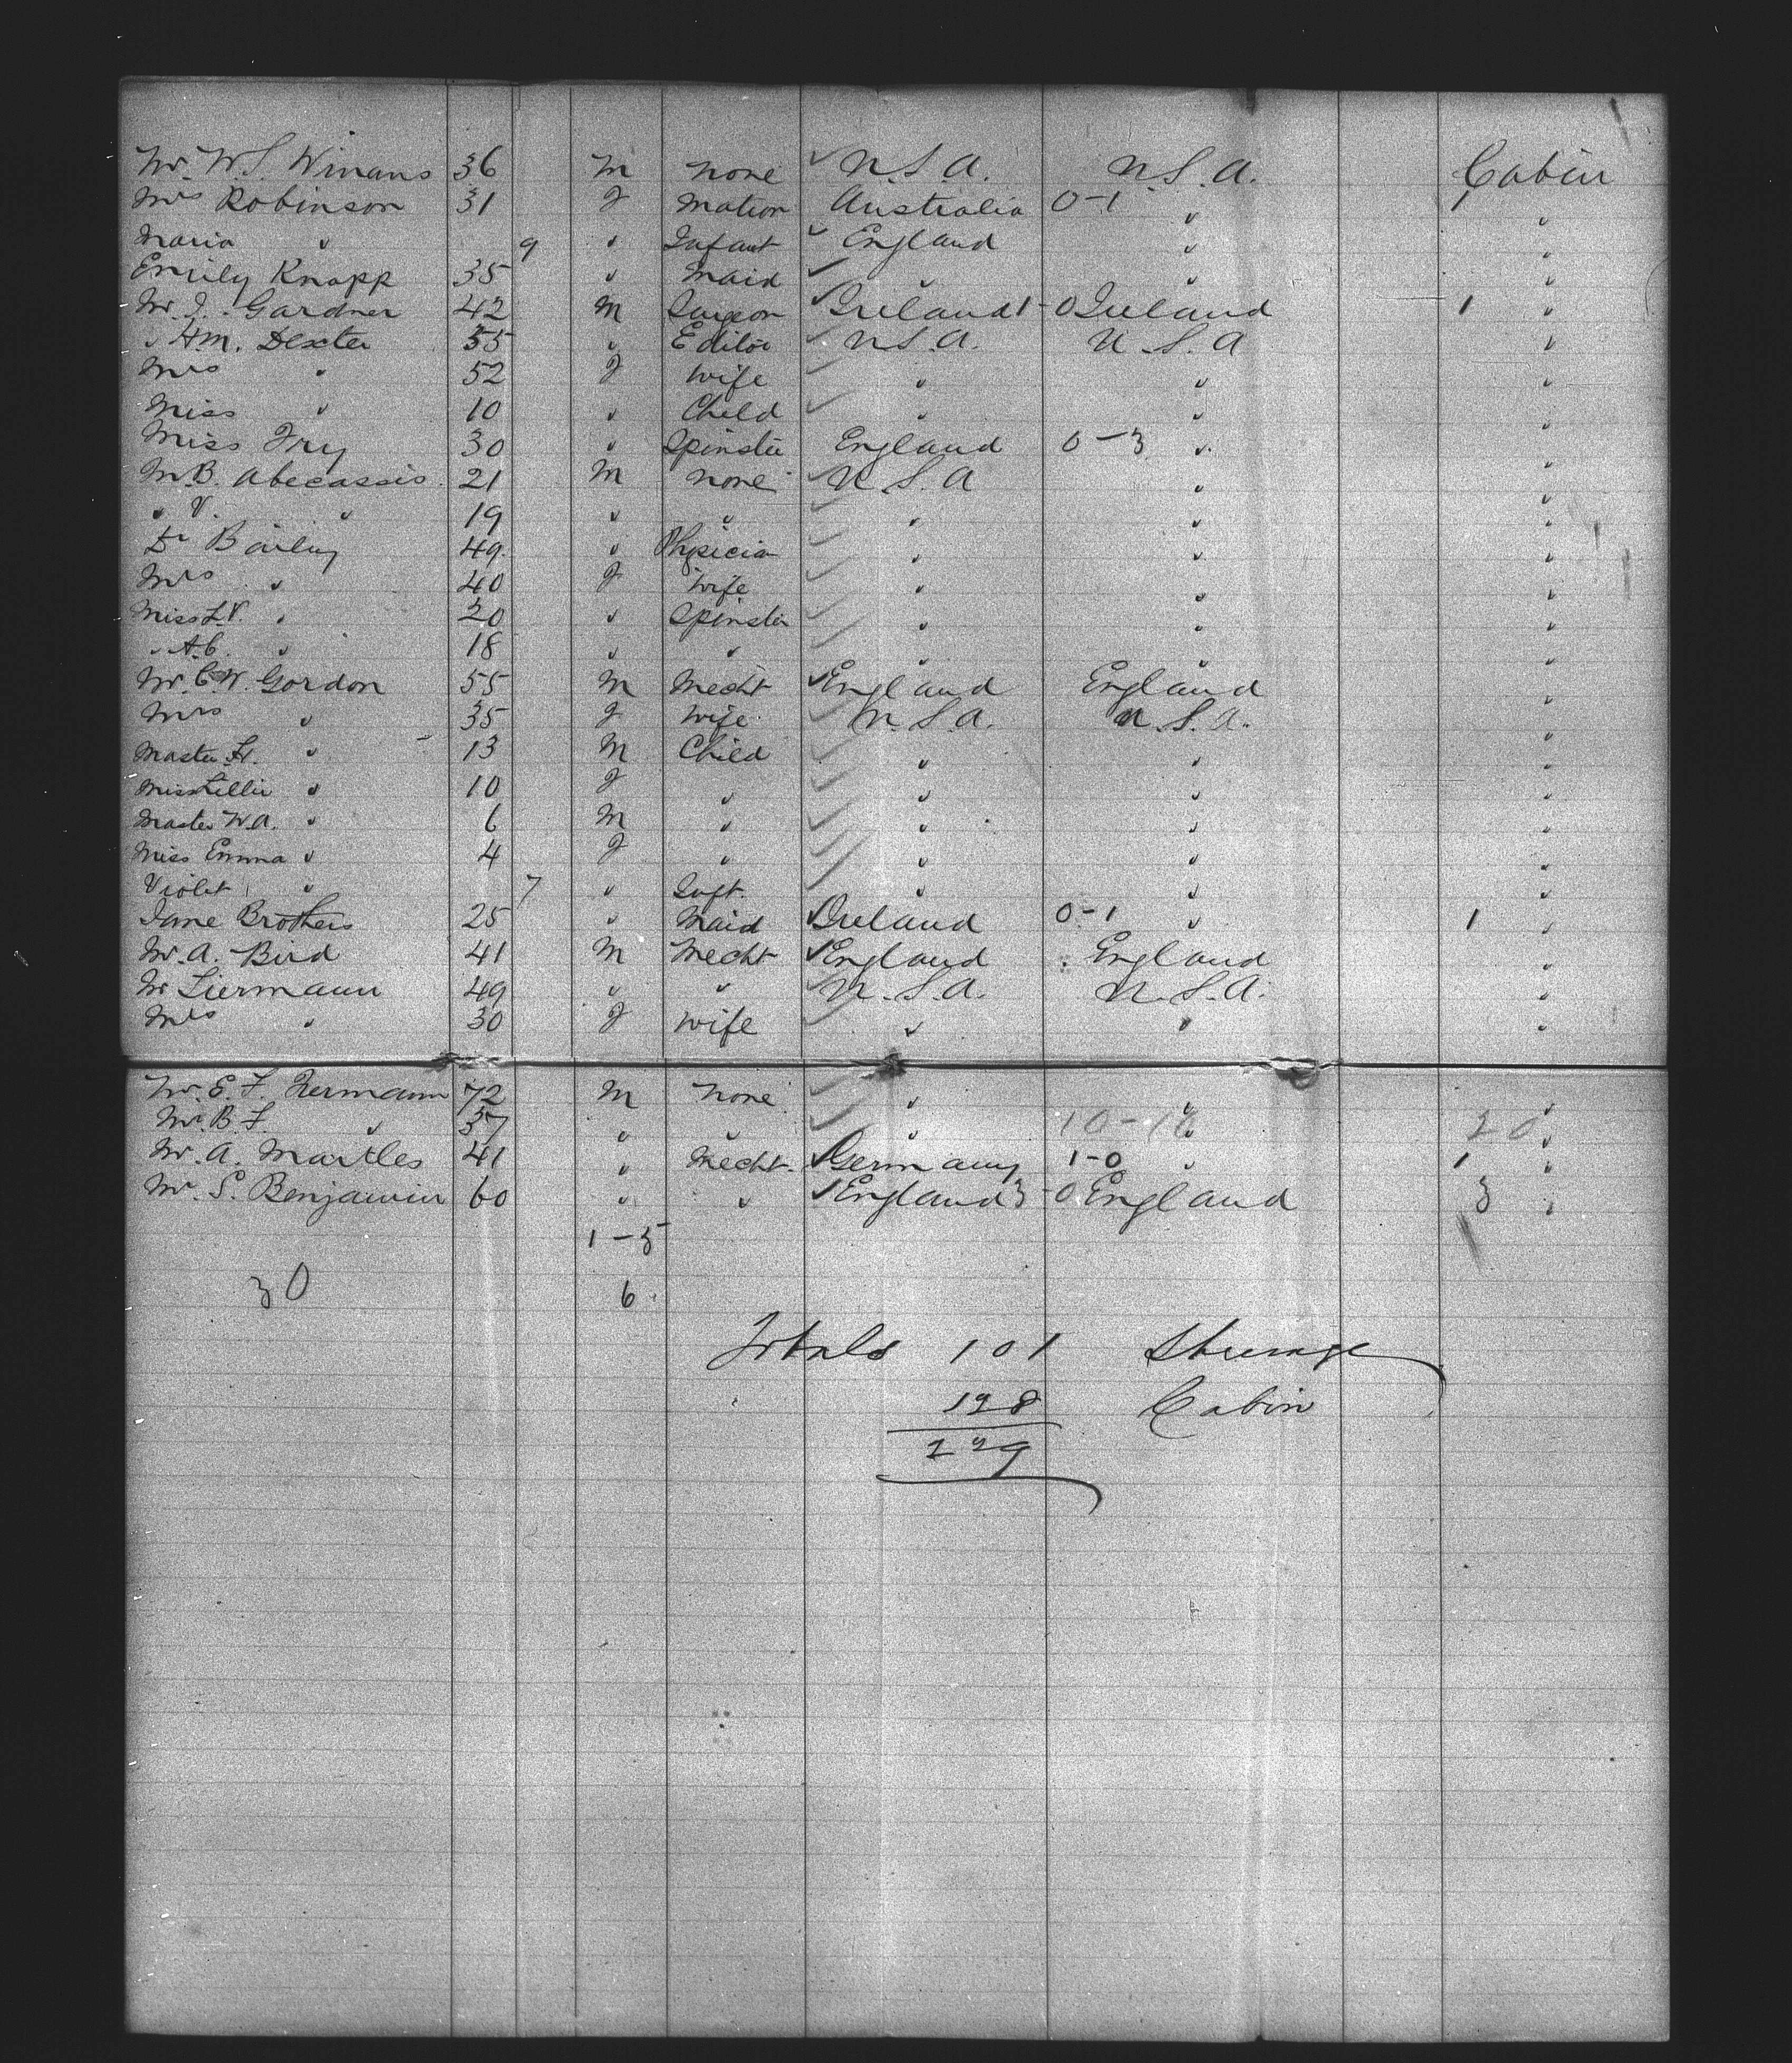 Mr. W.S. Winans 36 M None U.S.A. U.S.A. Cabin
Mrs Robinson 31 F Matron Australia 0-1 " 1 "
Maria " 9 " Infant England " "
Emily Knapp 35 " Maid " " "
Mr. J. Gardner 42 M Surgeon Ireland 1-0 Ireland 1 "
" H.M. Dexter 55 " Editor U.S.A. U.S.A "
Mrs " 52 F Wife " " "
Miss " 10 " Child " " "
Miss Fry 30 " Spinster England 0-3 " "
Mr. B. Abecassis 21 M None U.S.A " "
" V. " 19 " " " " "
Dr Bailey 49 " Physician " " "
Mrs " 40 F Wife " " "
Miss L.V. " 20 " Spinster " " "
" A.C. " 18 " " " " "
Mr. C.W. Gordon 55 M Mecht England England "
Mrs " 35 F Wife U.S.A. U.S.A. "
Master H. " 13 M Child " " "
Miss Lillie " 10 F " " " "
Master W.A. " 6 M " " " "
Miss Emma " 4 F " " " "
Violet " 7 " Inft. " " "
Jane Brothers 25 " Maid Ireland 0-1 " 1 "
Mr. A. Bird 41 M Mecht England England "
Mr Liermann 49 " " U.S.A. U.S.A. "
Mrs " 30 F Wife " " "
Mr. E. F. 72 M None " " "
Mr. B. F. " 37 " " " " 20 "
Mr. A. Martles 41 " Mecht. Germany 1-0 " 1 "
Mr. S. Benjamin 60 " " England 3-0 England 3 "
1-5
30 6
Totals 101 Steerage
128 Cabin
229